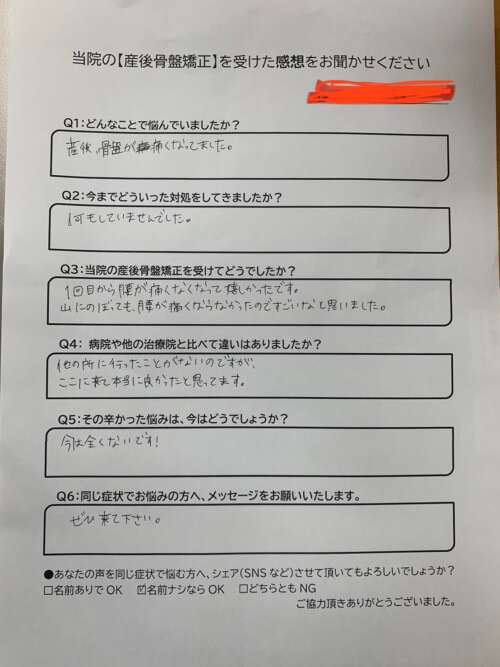 当院の【産後骨盤矯正】を受けた感想をお聞かせください
Q1:どんなことで悩んでいましたか?
産後、骨盤が痛くなってました。
Q2:今までどういった対処をしてきましたか?
何もしていませんでした。
Q3:当院の産後骨盤矯正を受けてどうでしたか?
1回目から腰が痛くなくなって嬉しかったです。
山にのぼっても、腰が痛くならなかったのですごいなと思いました。
Q4: 病院や他の治療院と比べて違いはありましたか?
他の所に行ったことがないのですが、
ここに来て本当に良かったと思ってます。
Q5:その辛かった悩みは、今はどうでしょうか?
今は全くないです!
Q6:同じ症状でお悩みの方へ、メッセージをお願いいたします。
ぜひ来て下さい。
●あなたの声を同じ症状で悩む方へ、シェア(SNSなど)させて頂いてもよろしいでしょうか?
☐名前ありでOK ☑名前ナシならOK ☐どちらともNG
ご協力頂きありがとうございました。